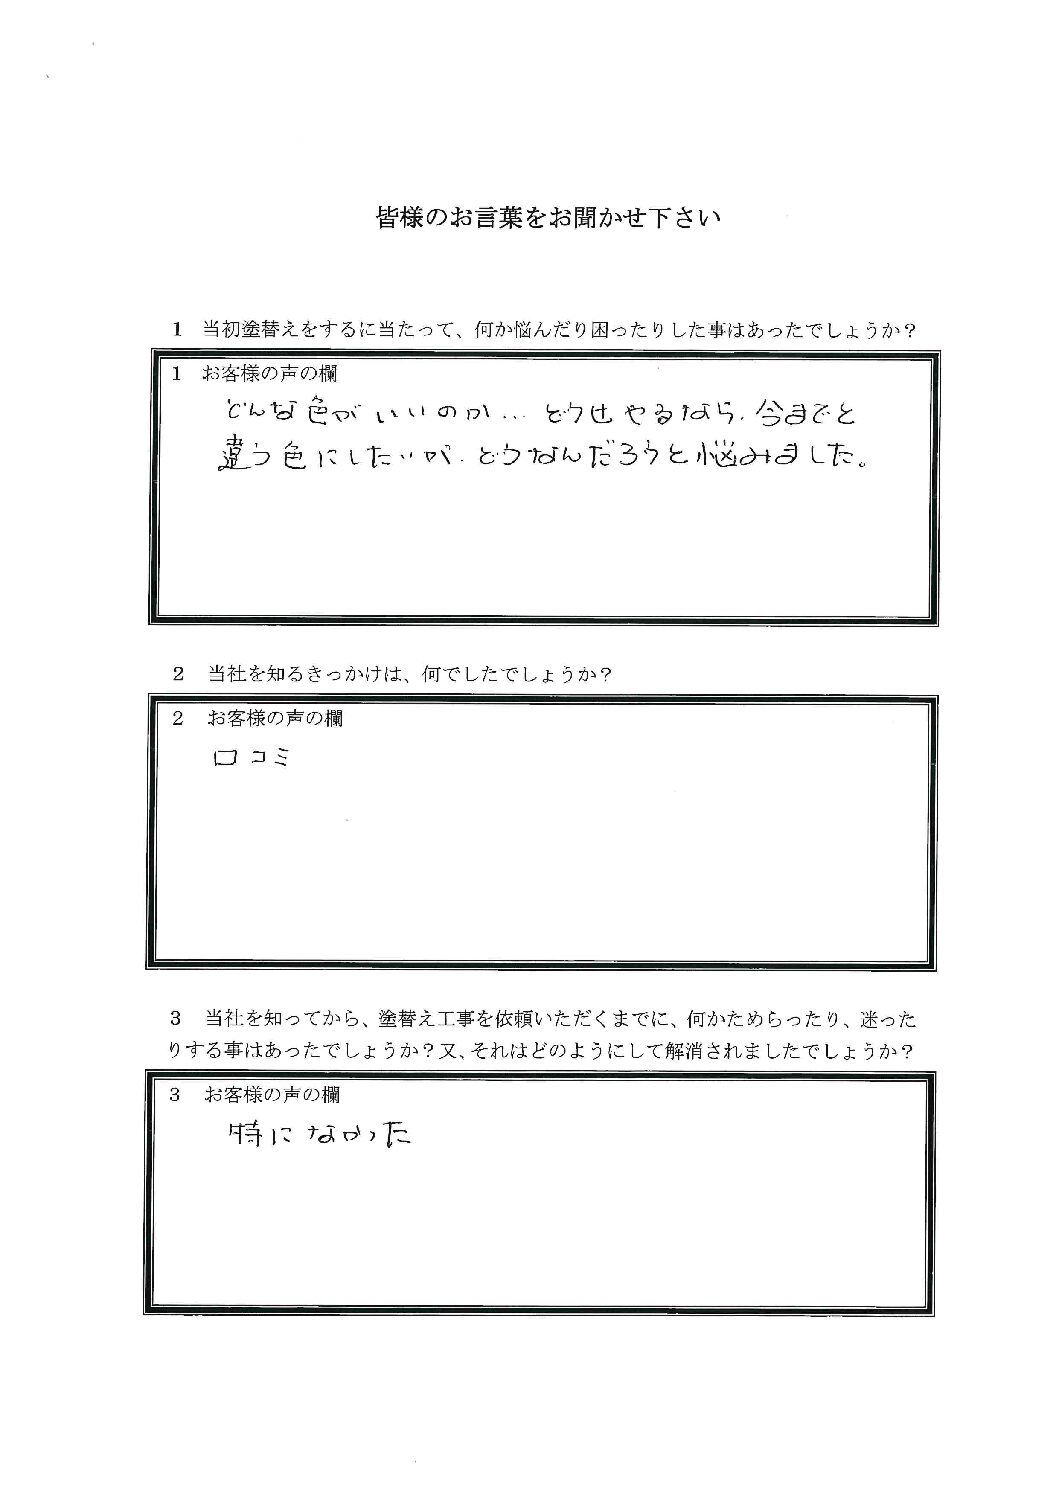 皆様のお言葉をお聞かせ下さい
1 当初塗替えをするに当たって、何か悩んだり困ったりした事はあったでしょうか？
1 お客様の声の欄
どんな色がいいのか… どうせやるなら、今までと
違う色にしたいが、どうなんだろうと悩みました。
2 当社を知るきっかけは、何でしたでしょうか？
2 お客様の声の欄
口コミ
3 当社を知ってから、塗替え工事を依頼いただくまでに、何かためらったり、迷った
りする事はあったでしょうか？又、それはどのようにして解消されましたでしょうか？
3 お客様の声の欄
特になかった